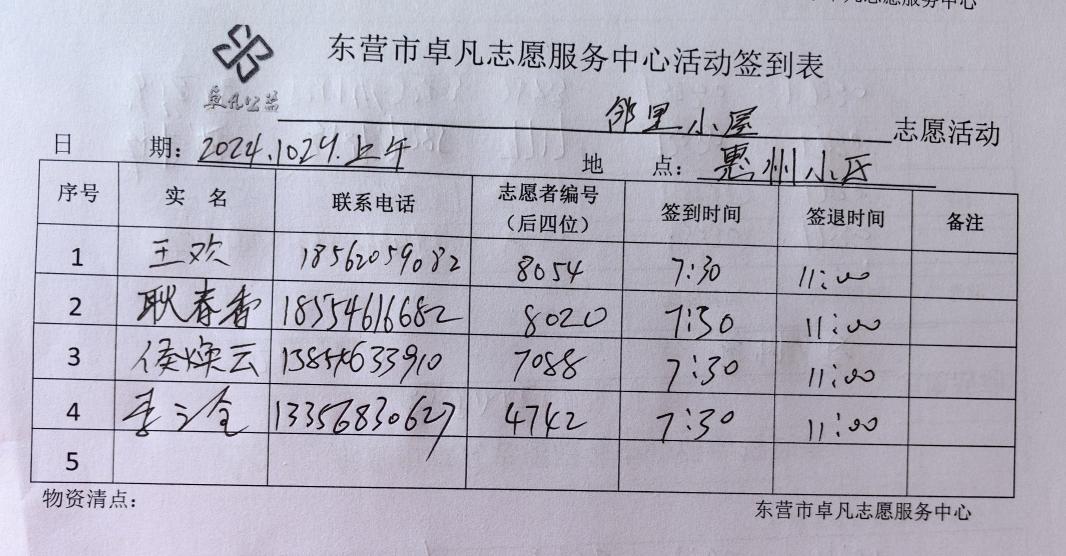 东营市卓凡志愿服务中心活动签到表
卓凡公益
邻里小屋 志愿活动
日 期：2024.1029.上午 地 点：惠州小区
序号 实 名 联系电话 志愿者编号（后四位） 签到时间 签退时间 备注
1 王欢 18562059082 8054 7:30 11:00
2 耿春香 18554616682 8020 7:30 11:00
3 侯焕云 7088 7:30 11:00
4 13356830627 4742 7:30 11:00
5
物资清点： 东营市卓凡志愿服务中心